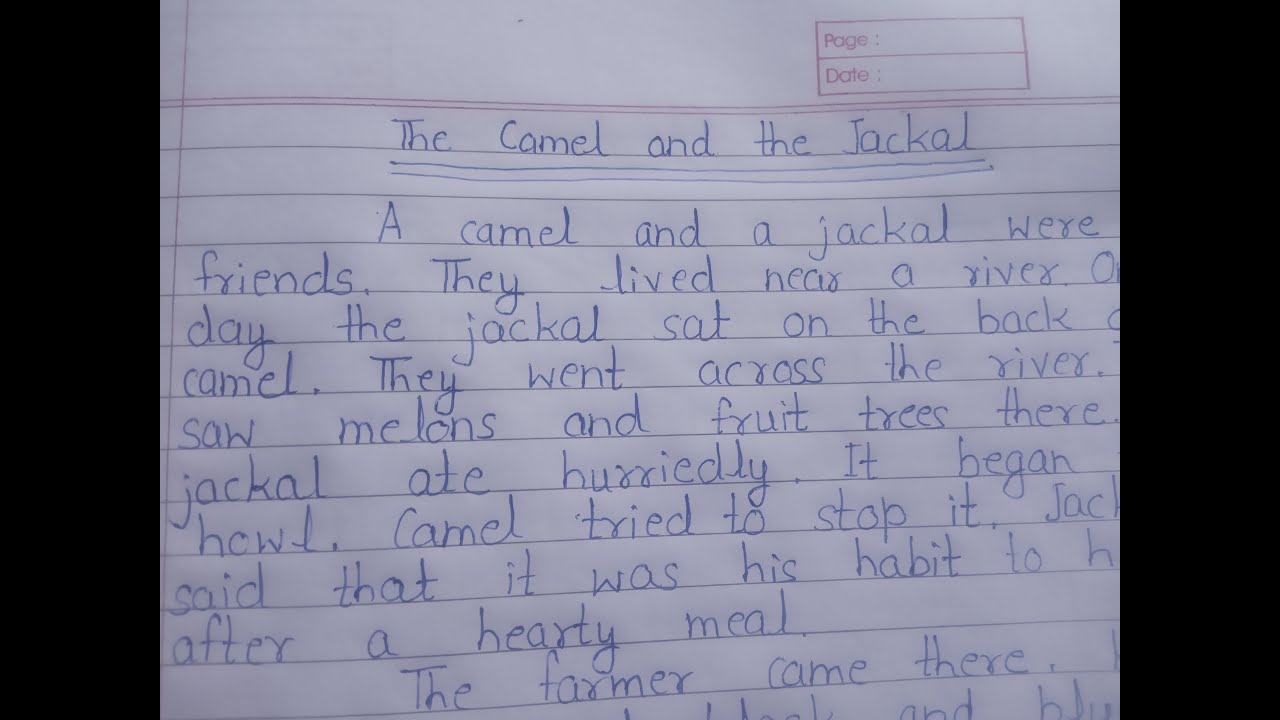 Page :
Date :
The Camel and the Jackal
A camel and a jackal were
friends. They lived near a river. O
day the jackal sat on the back
camel. They went across the river.
saw melons and fruit trees there.
jackal ate hurriedly. It began
howl. Camel tried to stop it. Jack
said that it was his habit to h
after a hearty meal.
The farmer came there.
and